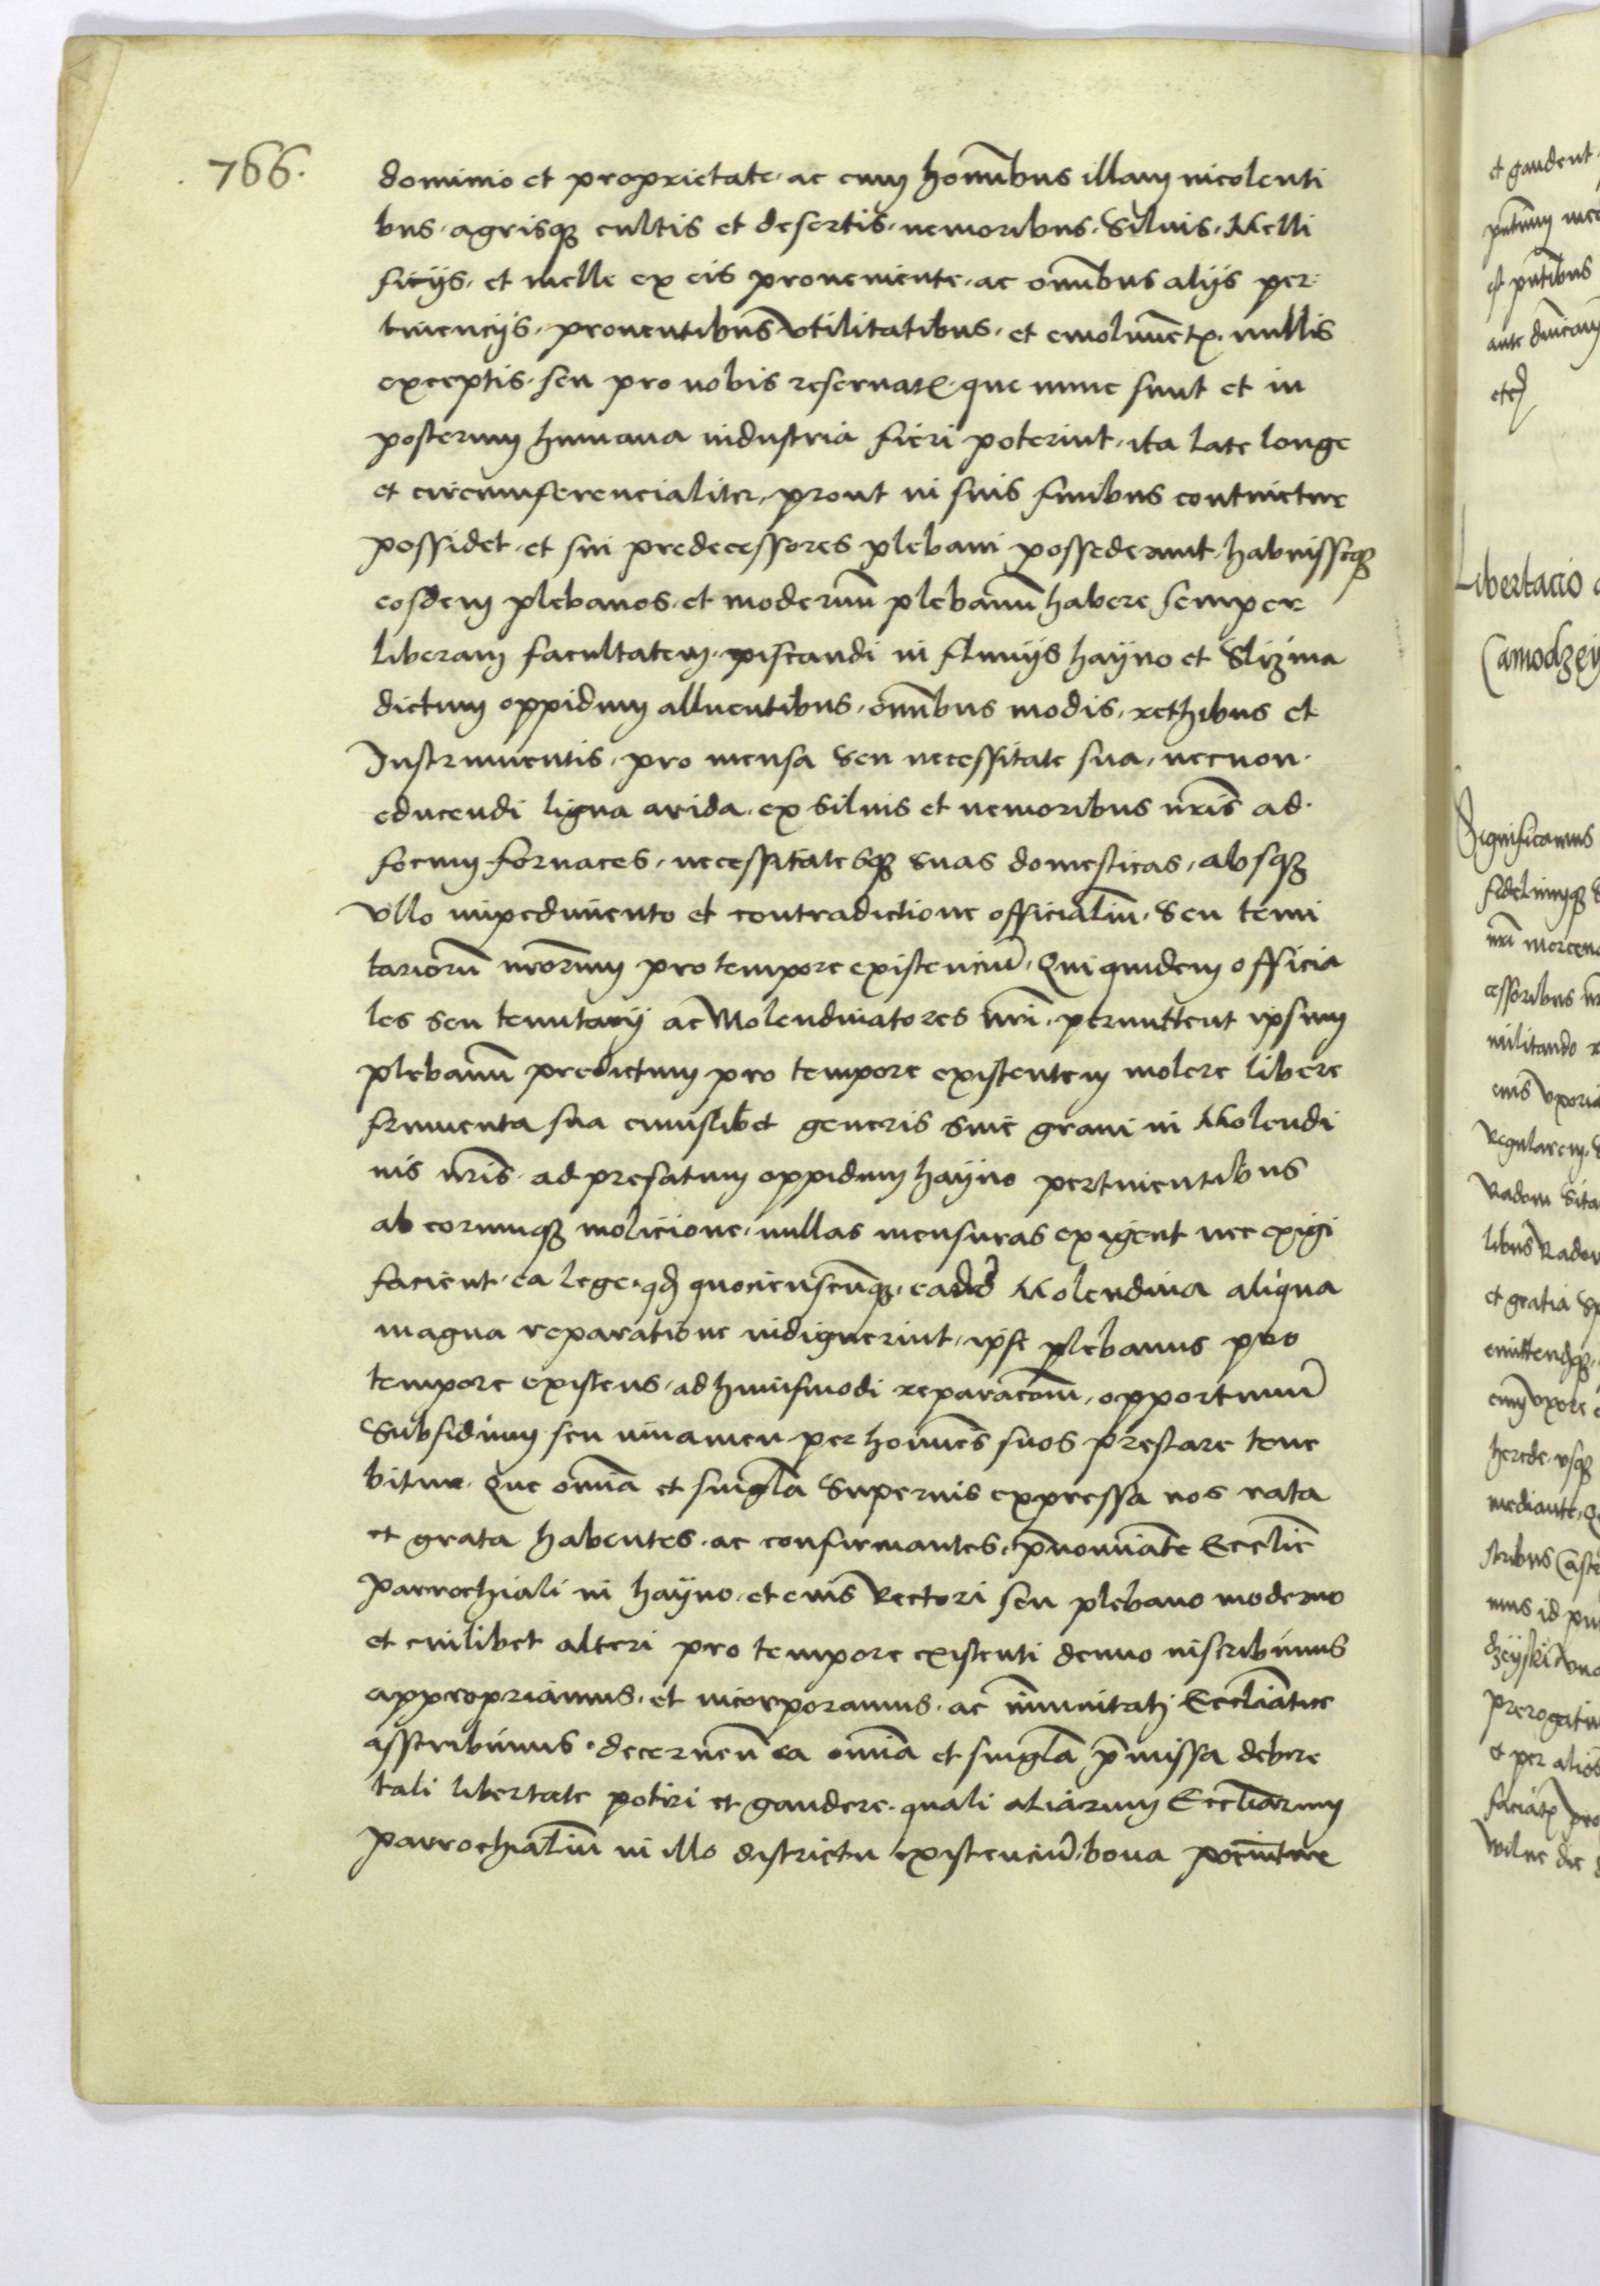 766.
dominio et proprietate, ac cum hominibus illam incolenti
bus, agrisq3 cultis et desertis, nemoribus, Siluis, Melli
ficijs, et melle ex eis proueniente, ac omnibus alijs per
tinencijs, prouentibus vtilitatibus, et emolumentis, nullis
exceptis, seu pro nobis reseruatis, que nunc sunt et in
posterum humana industria fieri poterint, ita late longe
et circumferencialiter, prout in suis finibus continetur
possidet, et sui predecessores plebani possederunt, habuisseq3
eosdem plebanos, et modernum plebanum habere semper
liberam facultatem, piscandi in fluuijs hayno et Slizina
dictum oppidum alluentibus, omnibus modis, rethibus et
Instrumentis, pro mensa seu necessitate sua, necnon
educendi ligna arida, ex siluis et nemoribus nris ad
focum fornaces, necessitatesq3 suas domesticas, absq3
vllo impedimento et contradictione officialium, seu tenu
tariorum nrorum pro tempore existencium, Qui quidem officia
les seu tenutarij ac Molendinatores nri, permittent ipsum
plebanum predictum pro tempore existentem molere libere
frumenta sua cuiuslibet generis siue grani in Molendi
nis nris, ad prefatum oppidum hayno pertinentibus
ab eorumq3 molicione, nullas mensuras exigent nec exigi
facient, ea lege, qd quociescunq3, eadem Molendina aliqua
magna reparatione indiguerint, ipse plebanus pro
tempore existens, ad huiusmodi reparacom, opportunum
Subsidium seu iuuamen per homines suos prestare tene
bitur, Que omnia et singula Superius expressa nos rata
et grata habentes, ac confirmantes, prenominate Ecclie
parrochiali in hayno, et eius Rectori seu plebano moderno
et cuilibet alteri pro tempore existenti denuo inscribimus
appropriamus, et incorporamus, ac immunitati Eccliastice
asscribimus, decernen ea omnia et singula premissa debere
tali libertate potiri et gaudere, quali aliarum Eccliarum
parrochialium in illo districtu existencium, bona pociuntur
et gaudent
ante
etc
Libertacio
Camodzey
Significamus
fidelimq3
nri
cessoribus
militando
eius vxori
Regularem
Radom sita
et gratia
herede, vsq3
mediante
et per alios
wilne die